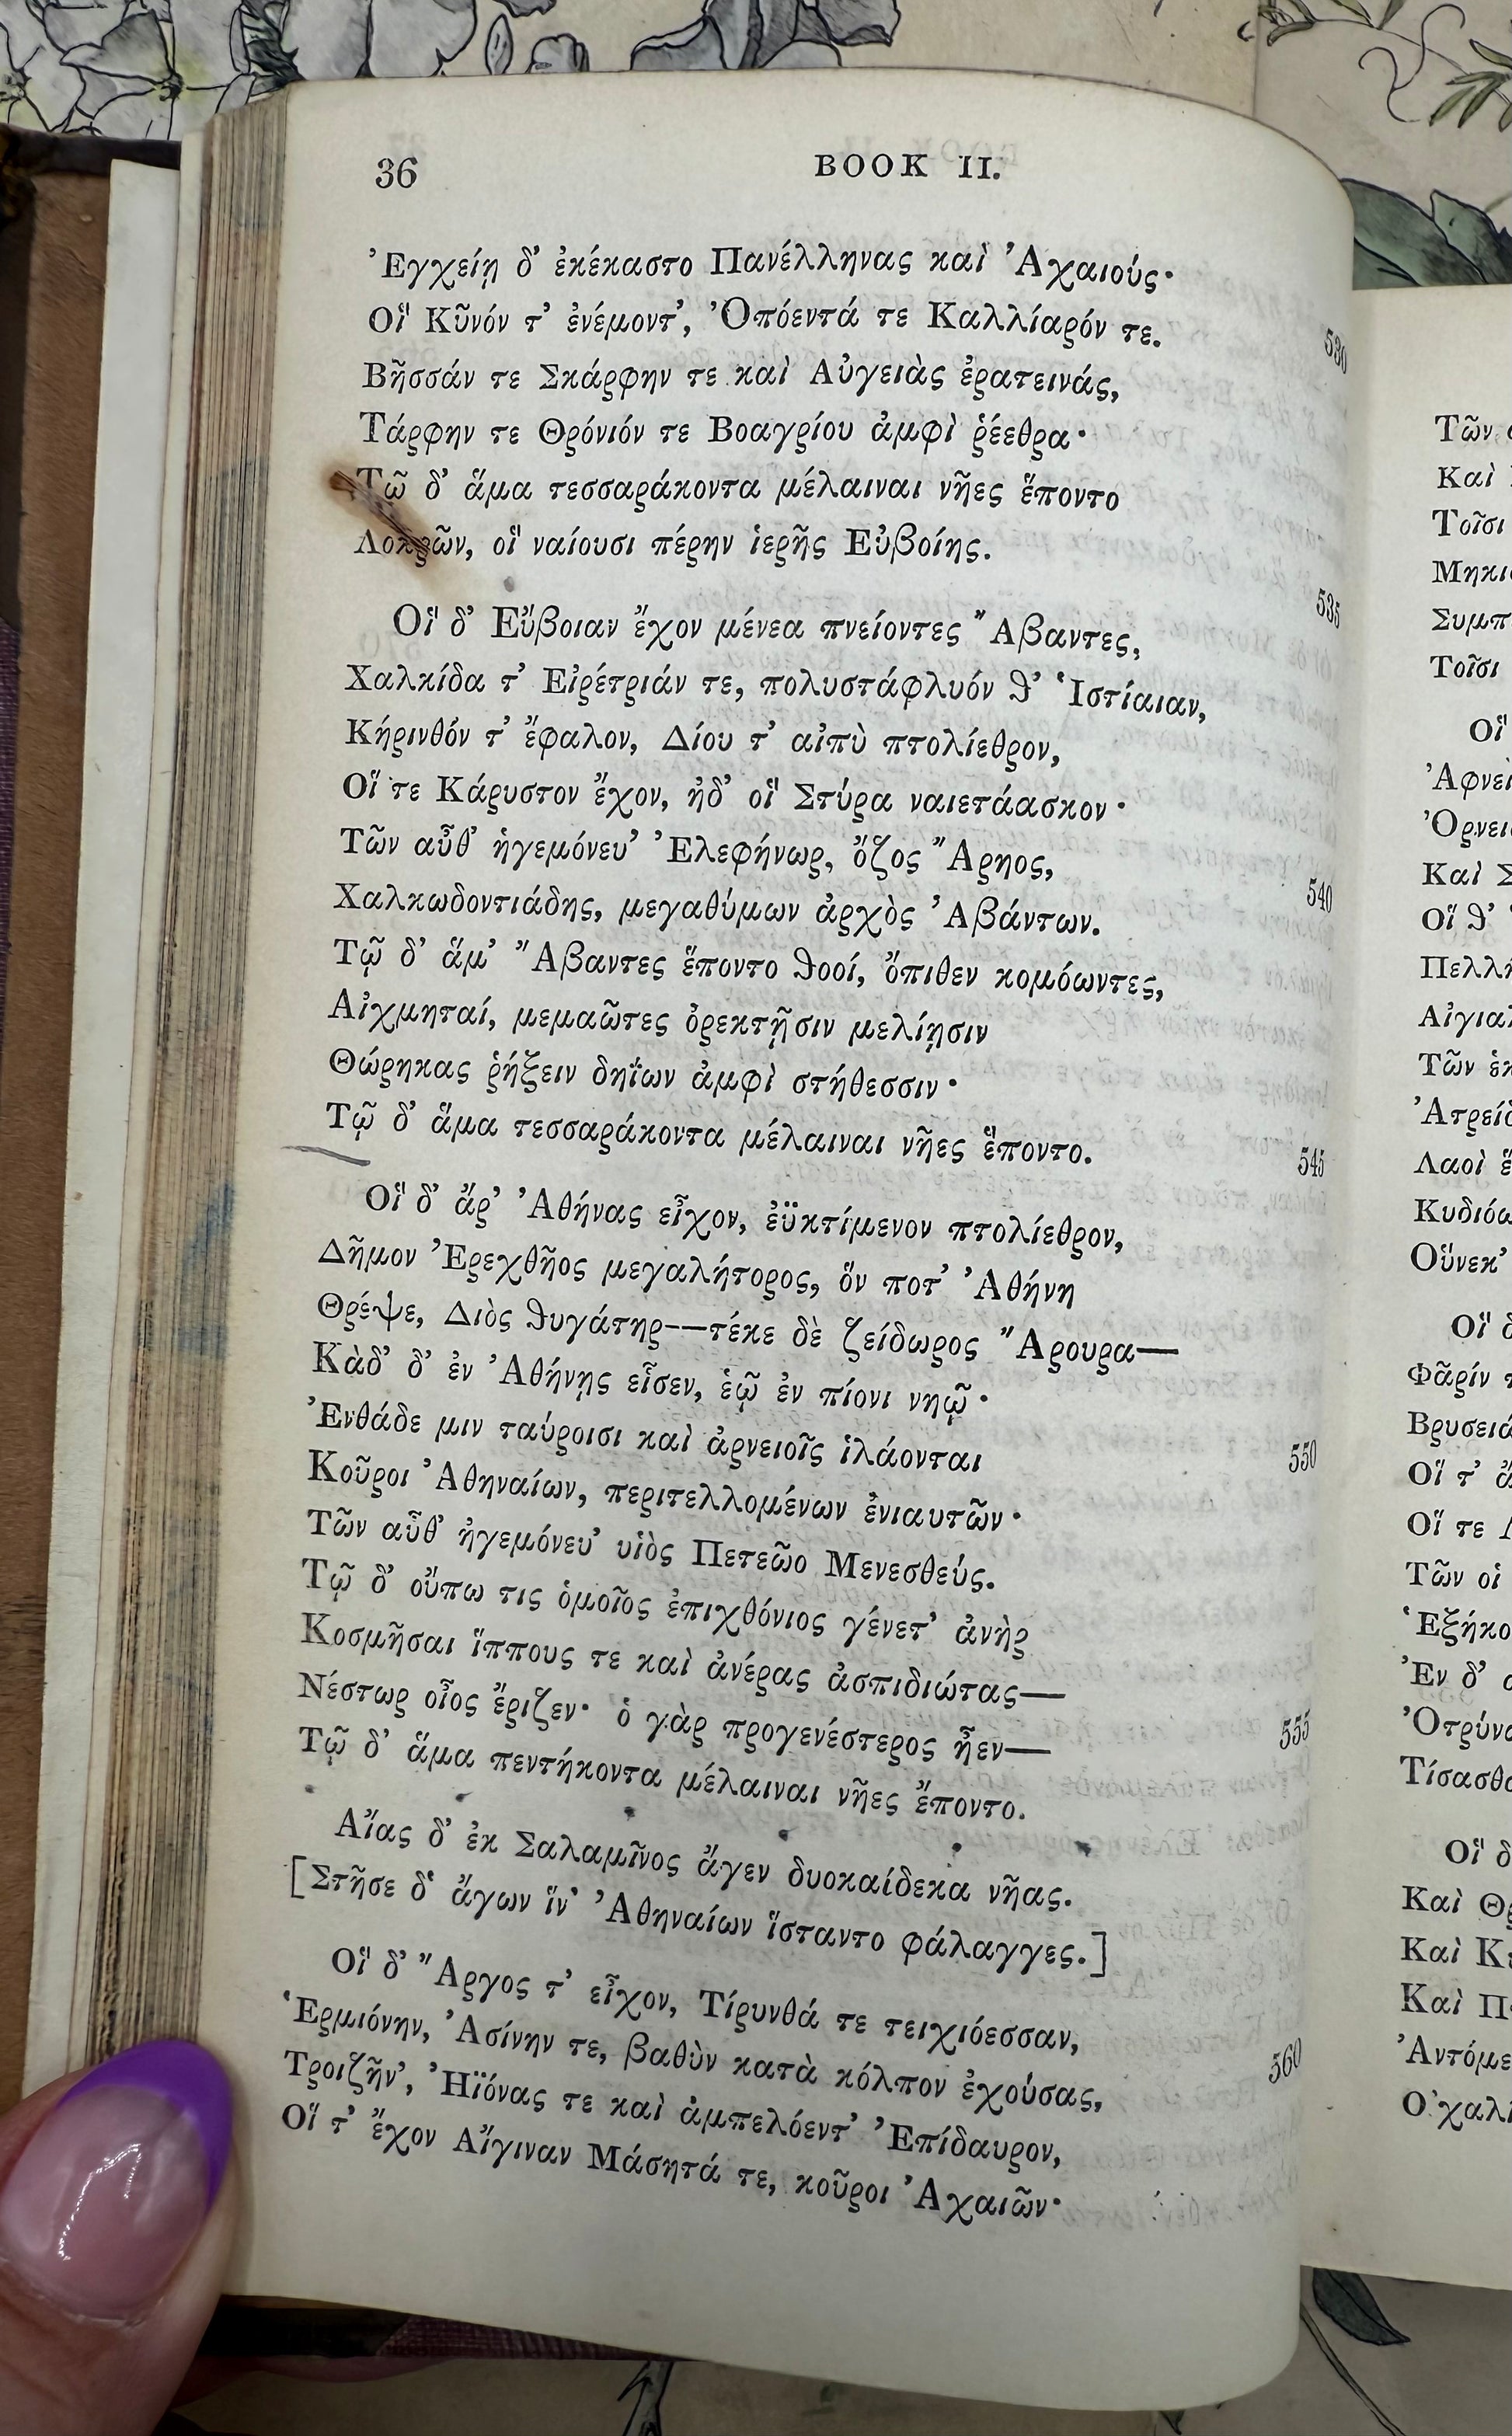 36
BOOK II.
Ἐγχείῃ δ’ ἐκέκαστο Πανέλληνας καὶ Ἀχαιούς·
Οἳ Κῦνόν τ’ ἐνέμοντ’, Ὀπόεντά τε Καλλίαρόν τε.
530
Βῆσσάν τε Σκάρφην τε καὶ Αὐγειὰς ἐρατεινάς,
Τάρφην τε Θρόνιόν τε Βοαγρίου ἀμφὶ ῥέεθρα·
Τῷ δ’ ἅμα τεσσαράκοντα μέλαιναι νῆες ἕποντο
Λοκρῶν, οἳ ναίουσι πέρην ἱερῆς Εὐβοίης.
535
Οἳ δ’ Εὔβοιαν ἔχον μένεα πνείοντες Ἄβαντες,
Χαλκίδα τ’ Εἰρέτριάν τε, πολυστάφλυόν θ’ Ἱστίαιαν,
Κήρινθόν τ’ ἔφαλον, Δίου τ’ αἰπὺ πτολίεθρον,
Οἵ τε Κάρυστον ἔχον, ἠδ’ οἳ Στύρα ναιετάασκον·
Τῶν αὖθ’ ἡγεμόνευ’ Ἐλεφήνωρ, ὄζος Ἄρηος,
540
Χαλκωδοντιάδης, μεγαθύμων ἀρχὸς Ἀβάντων.
Τῷ δ’ ἅμ’ Ἄβαντες ἕποντο θοοί, ὄπιθεν κομόωντες,
Αἰχμηταί, μεμαῶτες ὀρεκτῇσιν μελίῃσιν
Θώρηκας ῥήξειν δηΐων ἀμφὶ στήθεσσιν·
Τῷ δ’ ἅμα τεσσαράκοντα μέλαιναι νῆες ἕποντο.
545
Οἳ δ’ ἄρ’ Ἀθήνας εἶχον, ἐϋκτίμενον πτολίεθρον,
Δῆμον Ἐρεχθῆος μεγαλήτορος, ὅν ποτ’ Ἀθήνη
Θρέψε, Διὸς θυγάτηρ—τέκε δὲ ζείδωρος Ἄρουρα—
Κὰδ’ δ’ ἐν Ἀθήνῃς εἷσεν, ἑῷ ἐν πίονι νηῷ·
Ἐνθάδε μιν ταύροισι καὶ ἀρνειοῖς ἱλάονται
550
Κοῦροι Ἀθηναίων, περιτελλομένων ἐνιαυτῶν·
Τῶν αὖθ’ ἡγεμόνευ’ υἱὸς Πετεῶο Μενεσθεύς.
Τῷ δ’ οὔπω τις ὁμοῖος ἐπιχθόνιος γένετ’ ἀνὴρ
Κοσμῆσαι ἵππους τε καὶ ἀνέρας ἀσπιδιώτας—
Νέστωρ οἶος ἔριζεν· ὁ γὰρ προγενέστερος ἦεν—
555
Τῷ δ’ ἅμα πεντήκοντα μέλαιναι νῆες ἕποντο.
Αἴας δ’ ἐκ Σαλαμῖνος ἄγεν δυοκαίδεκα νῆας.
[Στῆσε δ’ ἄγων ἵν’ Ἀθηναίων ἵσταντο φάλαγγες.]
Οἳ δ’ Ἄργος τ’ εἶχον, Τίρυνθά τε τειχιόεσσαν,
Ἑρμιόνην, Ἀσίνην τε, βαθὺν κατὰ κόλπον ἐχούσας,
560
Τροιζῆν’, Ἠϊόνας τε καὶ ἀμπελόεντ’ Ἐπίδαυρον,
Οἵ τ’ ἔχον Αἴγιναν Μάσητά τε, κοῦροι Ἀχαιῶν·
Τῶν
Καὶ
Τοῖσι
Τοῖσι
Οἳ
Καὶ
Οἵ θ’
Τῶν
Λαοὶ
Οὕνεκ’
Οἳ
Οἵ τ’
Οἵ τε
Τῶν οἱ
Ἐν δ’
Οἳ
Καὶ
Καὶ
Καὶ